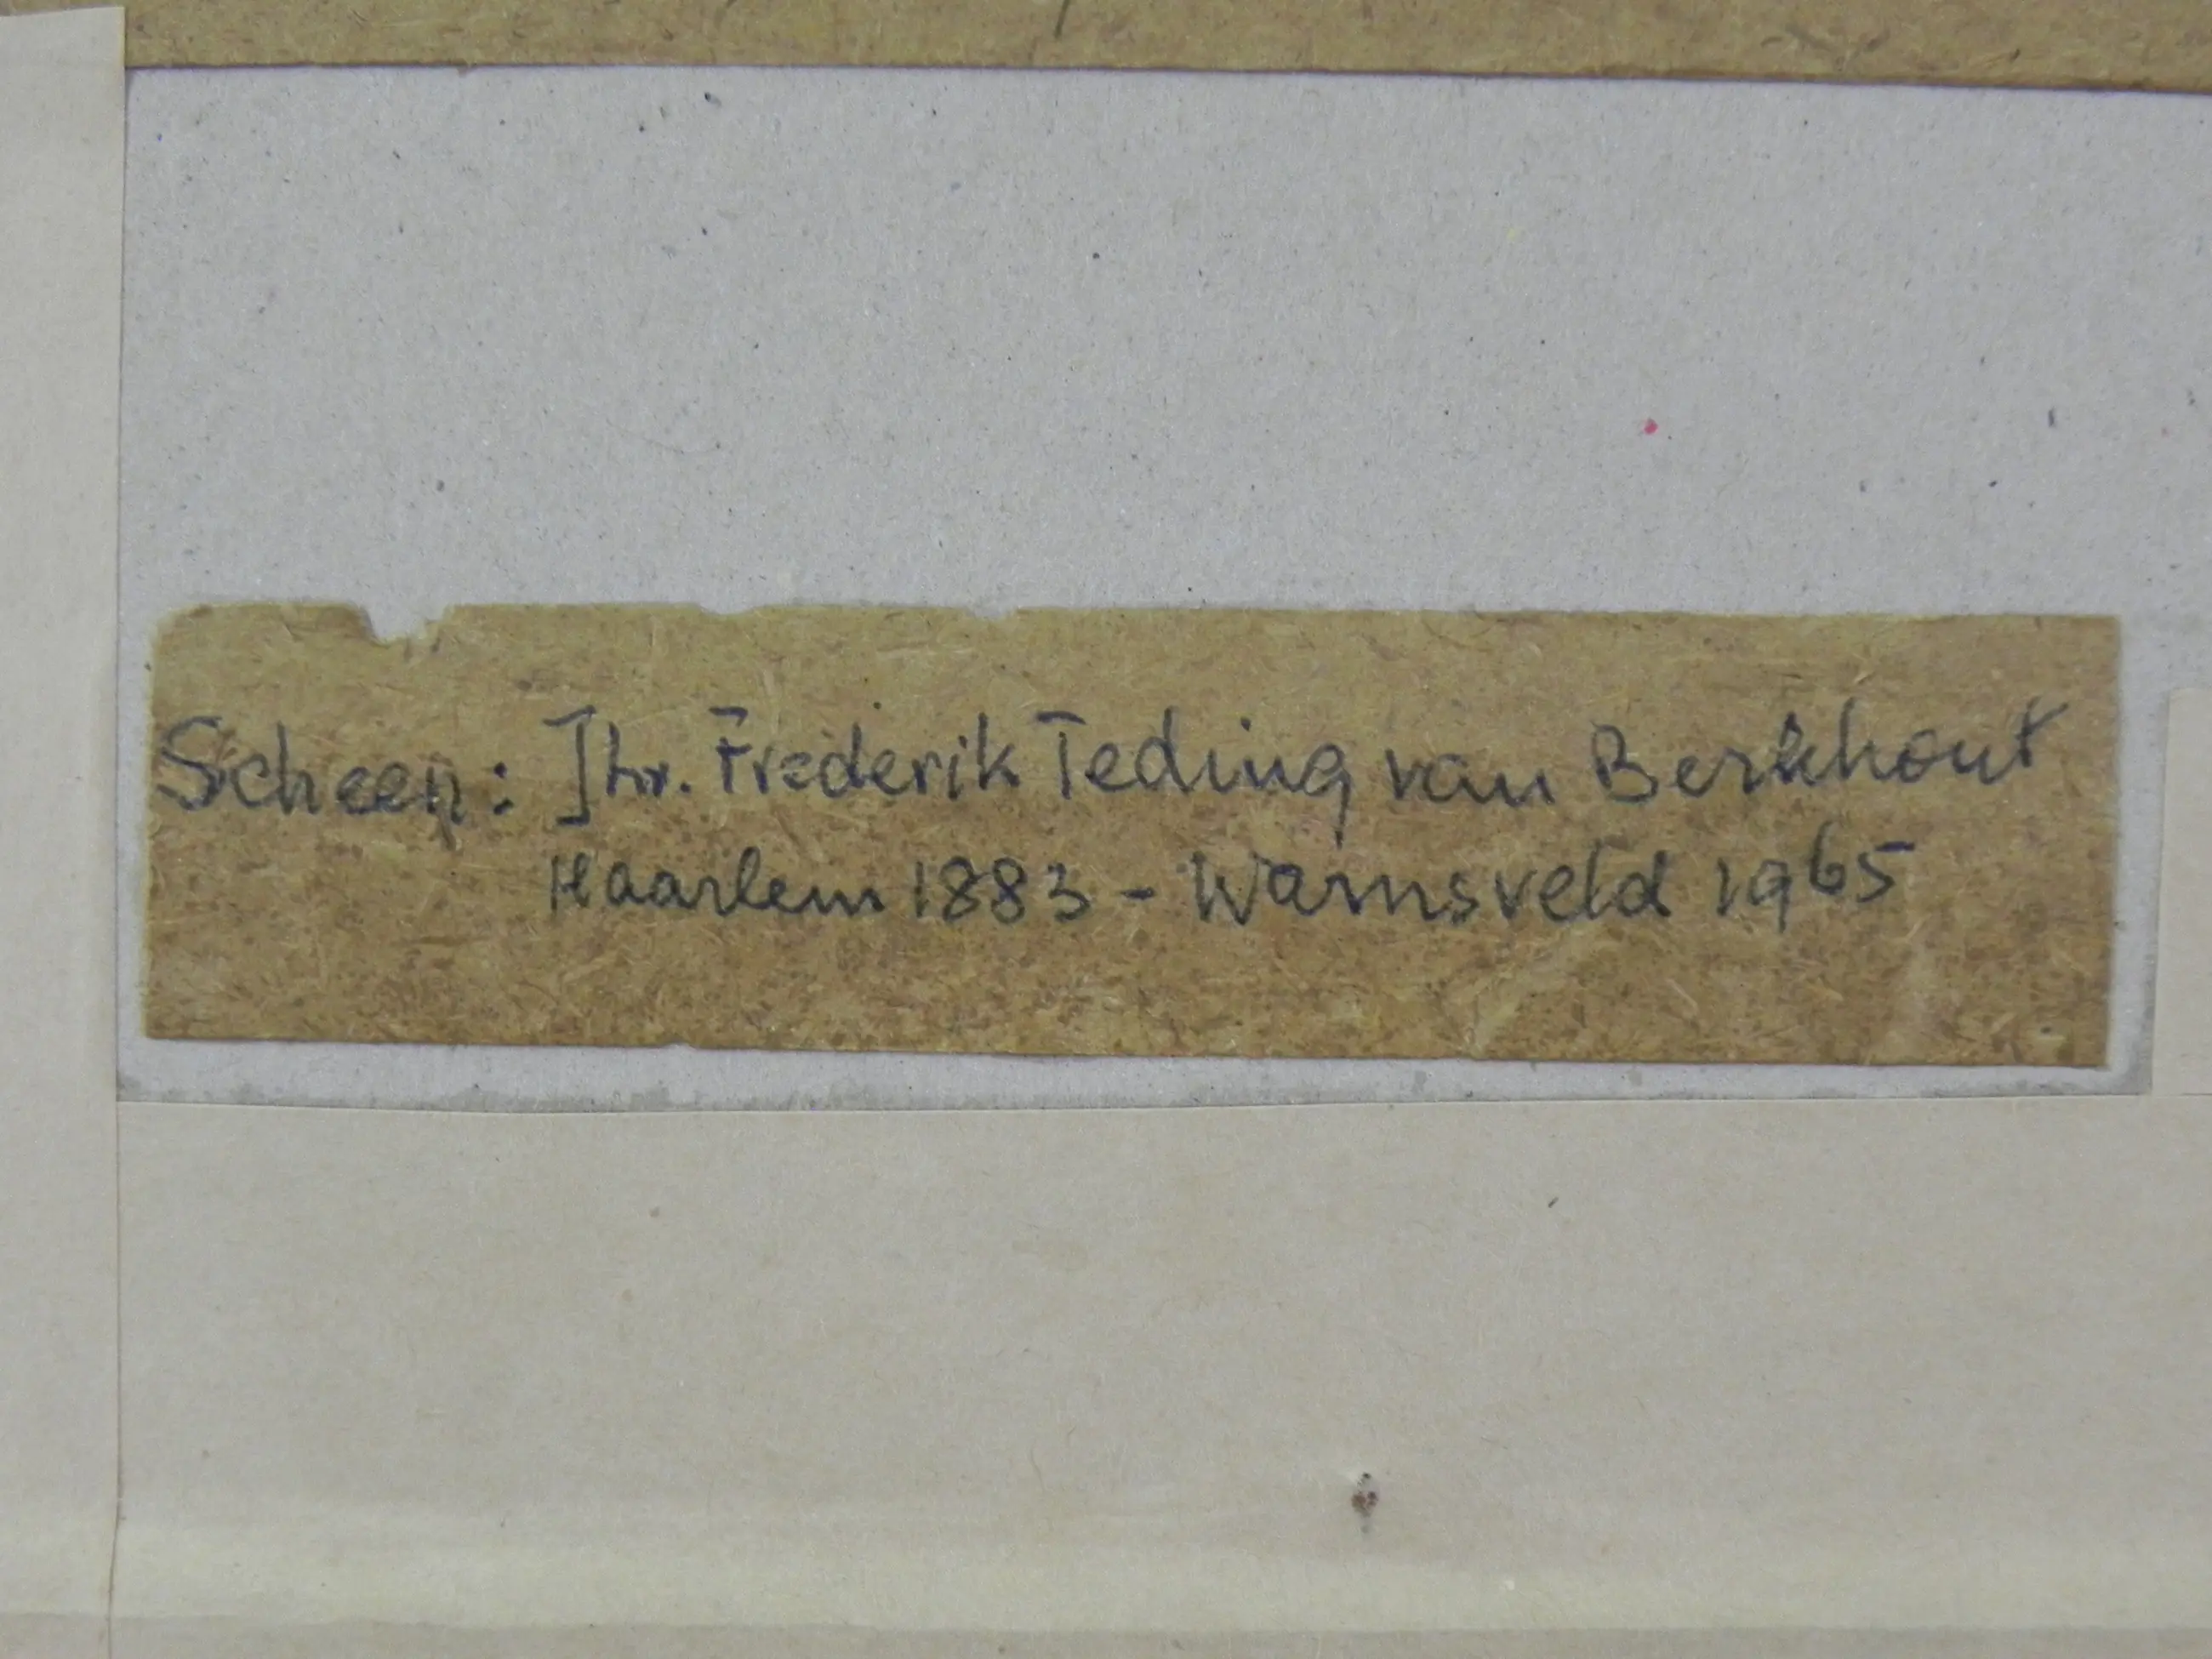 Scheen: Jhr. Frederik Teding van Berkhout
Haarlem 1883 - Warnsveld 1965